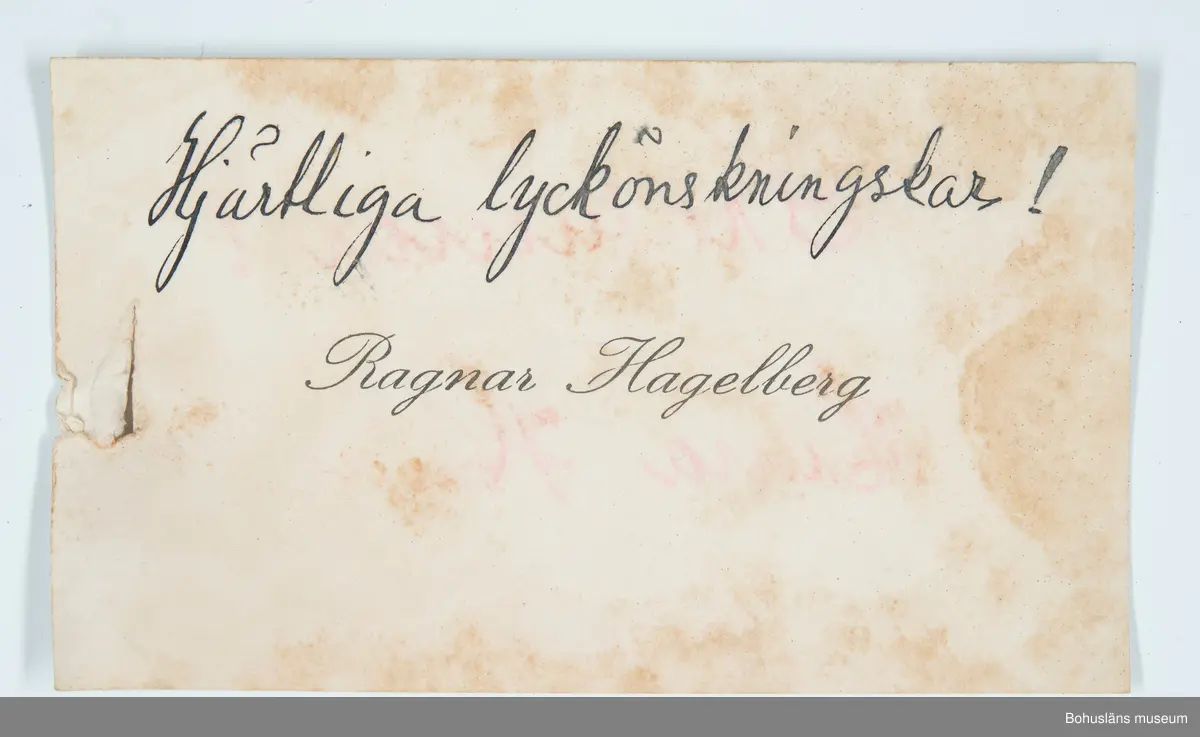 Hjärtliga lyckönskningskar!
Ragnar Hagelberg
Bohusläns museum